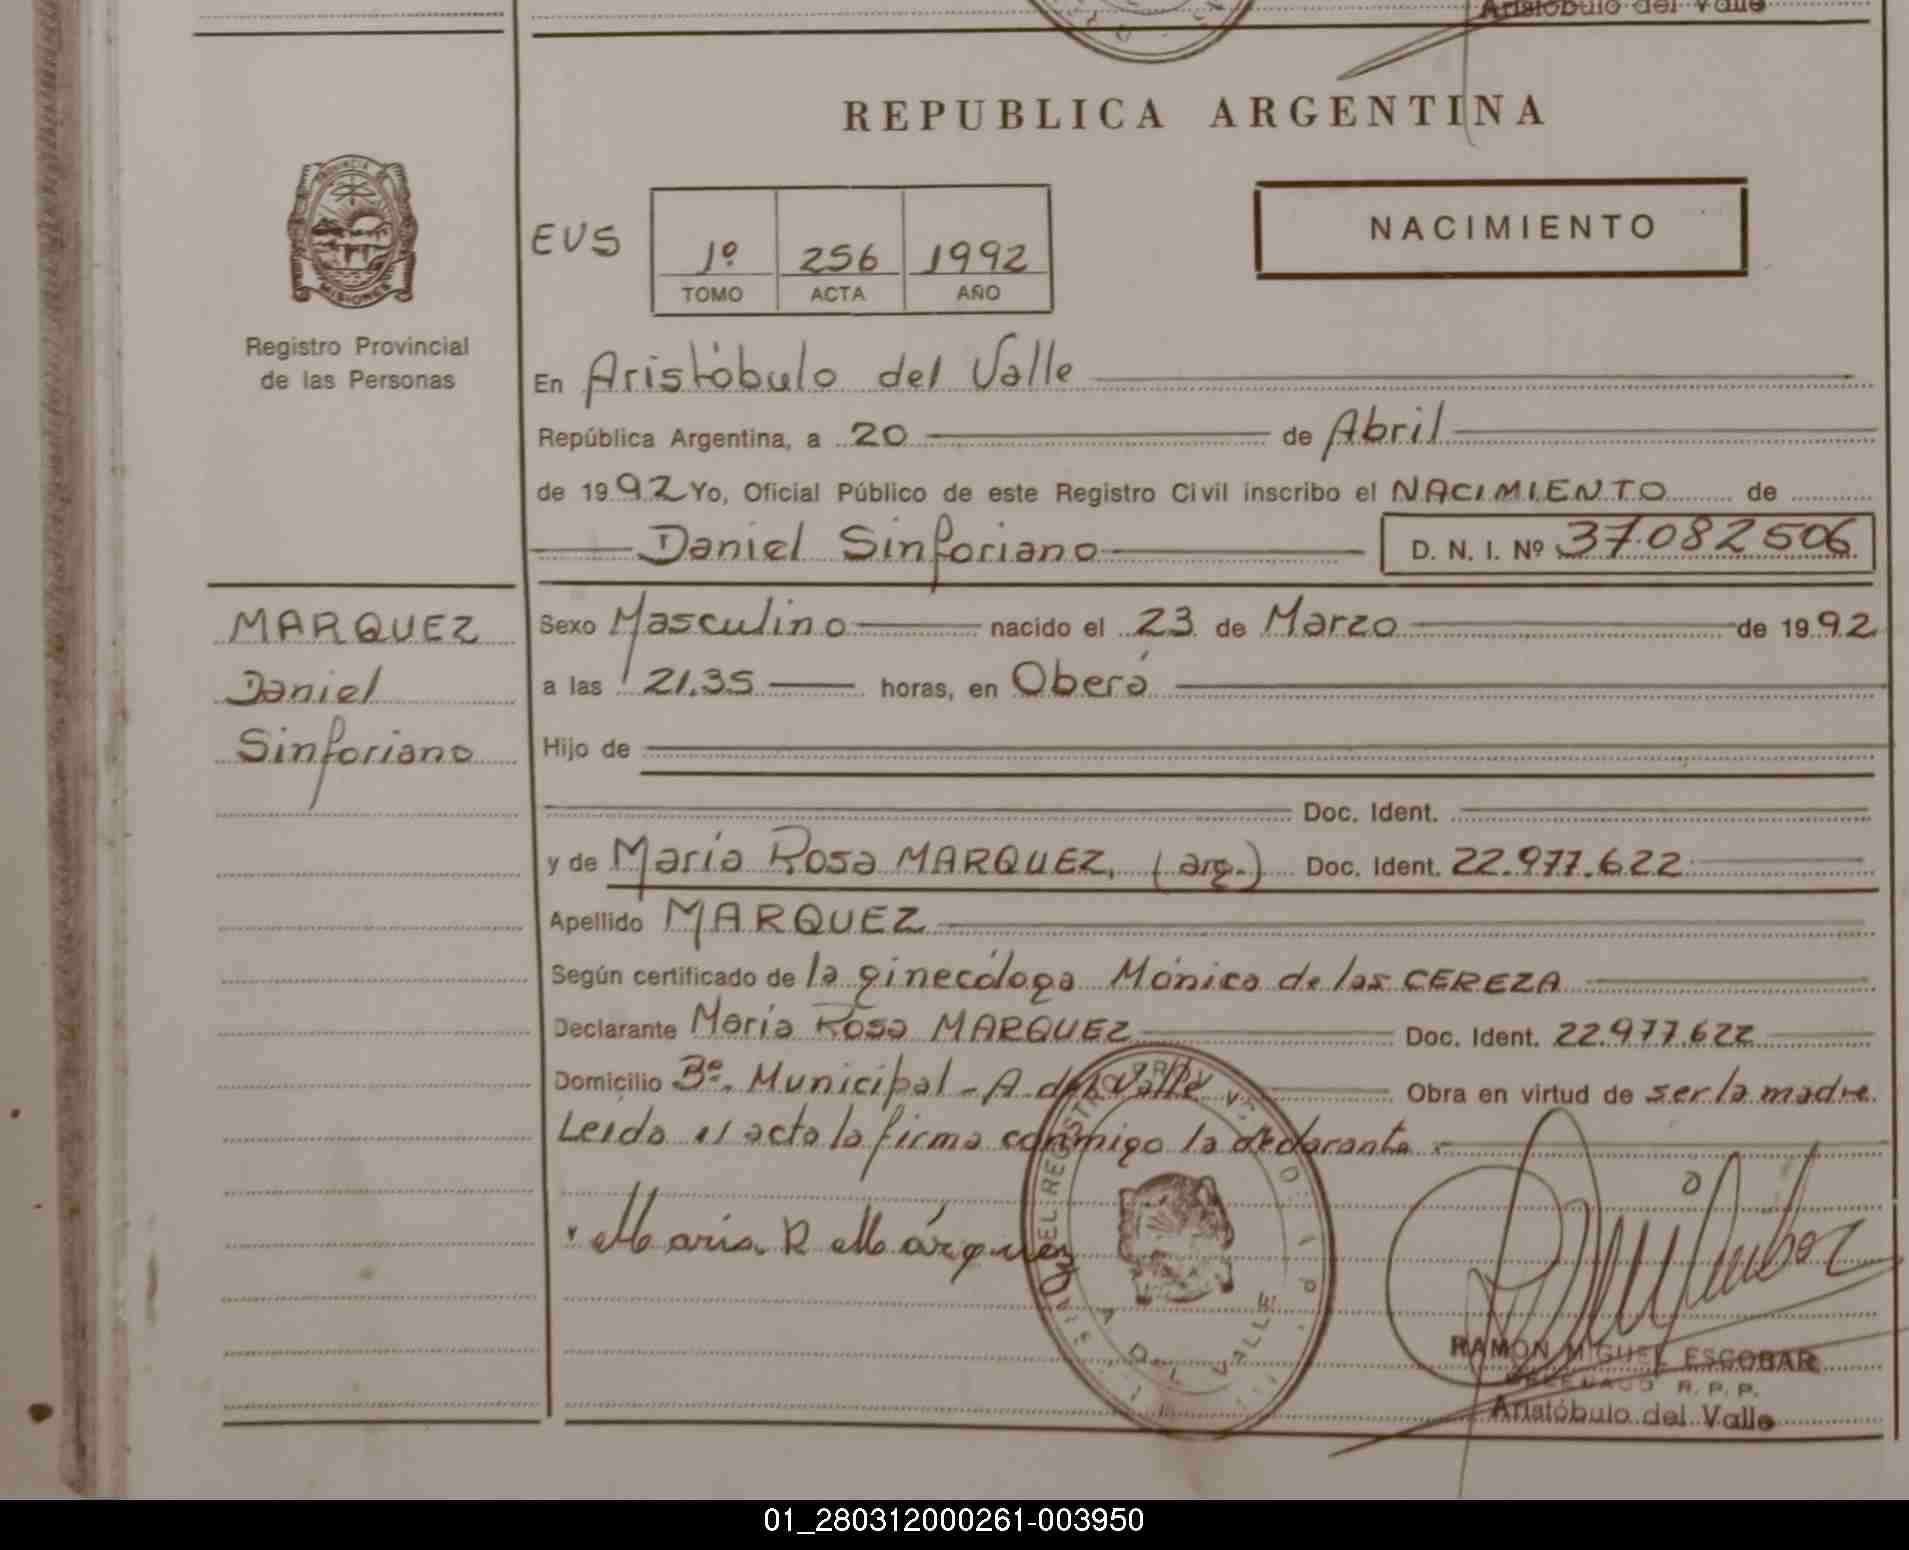 Aristóbulo del Valle
REPUBLICA ARGENTINA
PROVINCIA
MISIONES
Registro Provincial
de las Personas
EUS
1º 256 1992
TOMO ACTA AÑO
NACIMIENTO
En Aristóbulo del Valle
República Argentina, a 20 de Abril
de 1992 Yo, Oficial Público de este Registro Civil inscribo el NACIMIENTO de
Daniel Sinforiano D. N. I. Nº 37082506
MARQUEZ
Daniel
Sinforiano
Sexo Masculino nacido el 23 de Marzo de 1992
a las 21.35 horas, en Oberá
Hijo de
Doc. Ident.
y de María Rosa MARQUEZ, (arg.) Doc. Ident. 22.977.622
Apellido MARQUEZ
Según certificado de la ginecóloga Mónica de las CEREZA
Declarante María Rosa MARQUEZ Doc. Ident. 22.977.622
Domicilio Bº. Municipal - A. del Valle Obra en virtud de ser la madre.
Leída el acta la firma conmigo la declarante.-
Maria R Márquez
DEL REGISTRO
DEL VALLE
RAMON MIGUEL ESCOBAR
DELEGADO R. P. P.
Aristóbulo del Valle
01_280312000261-003950